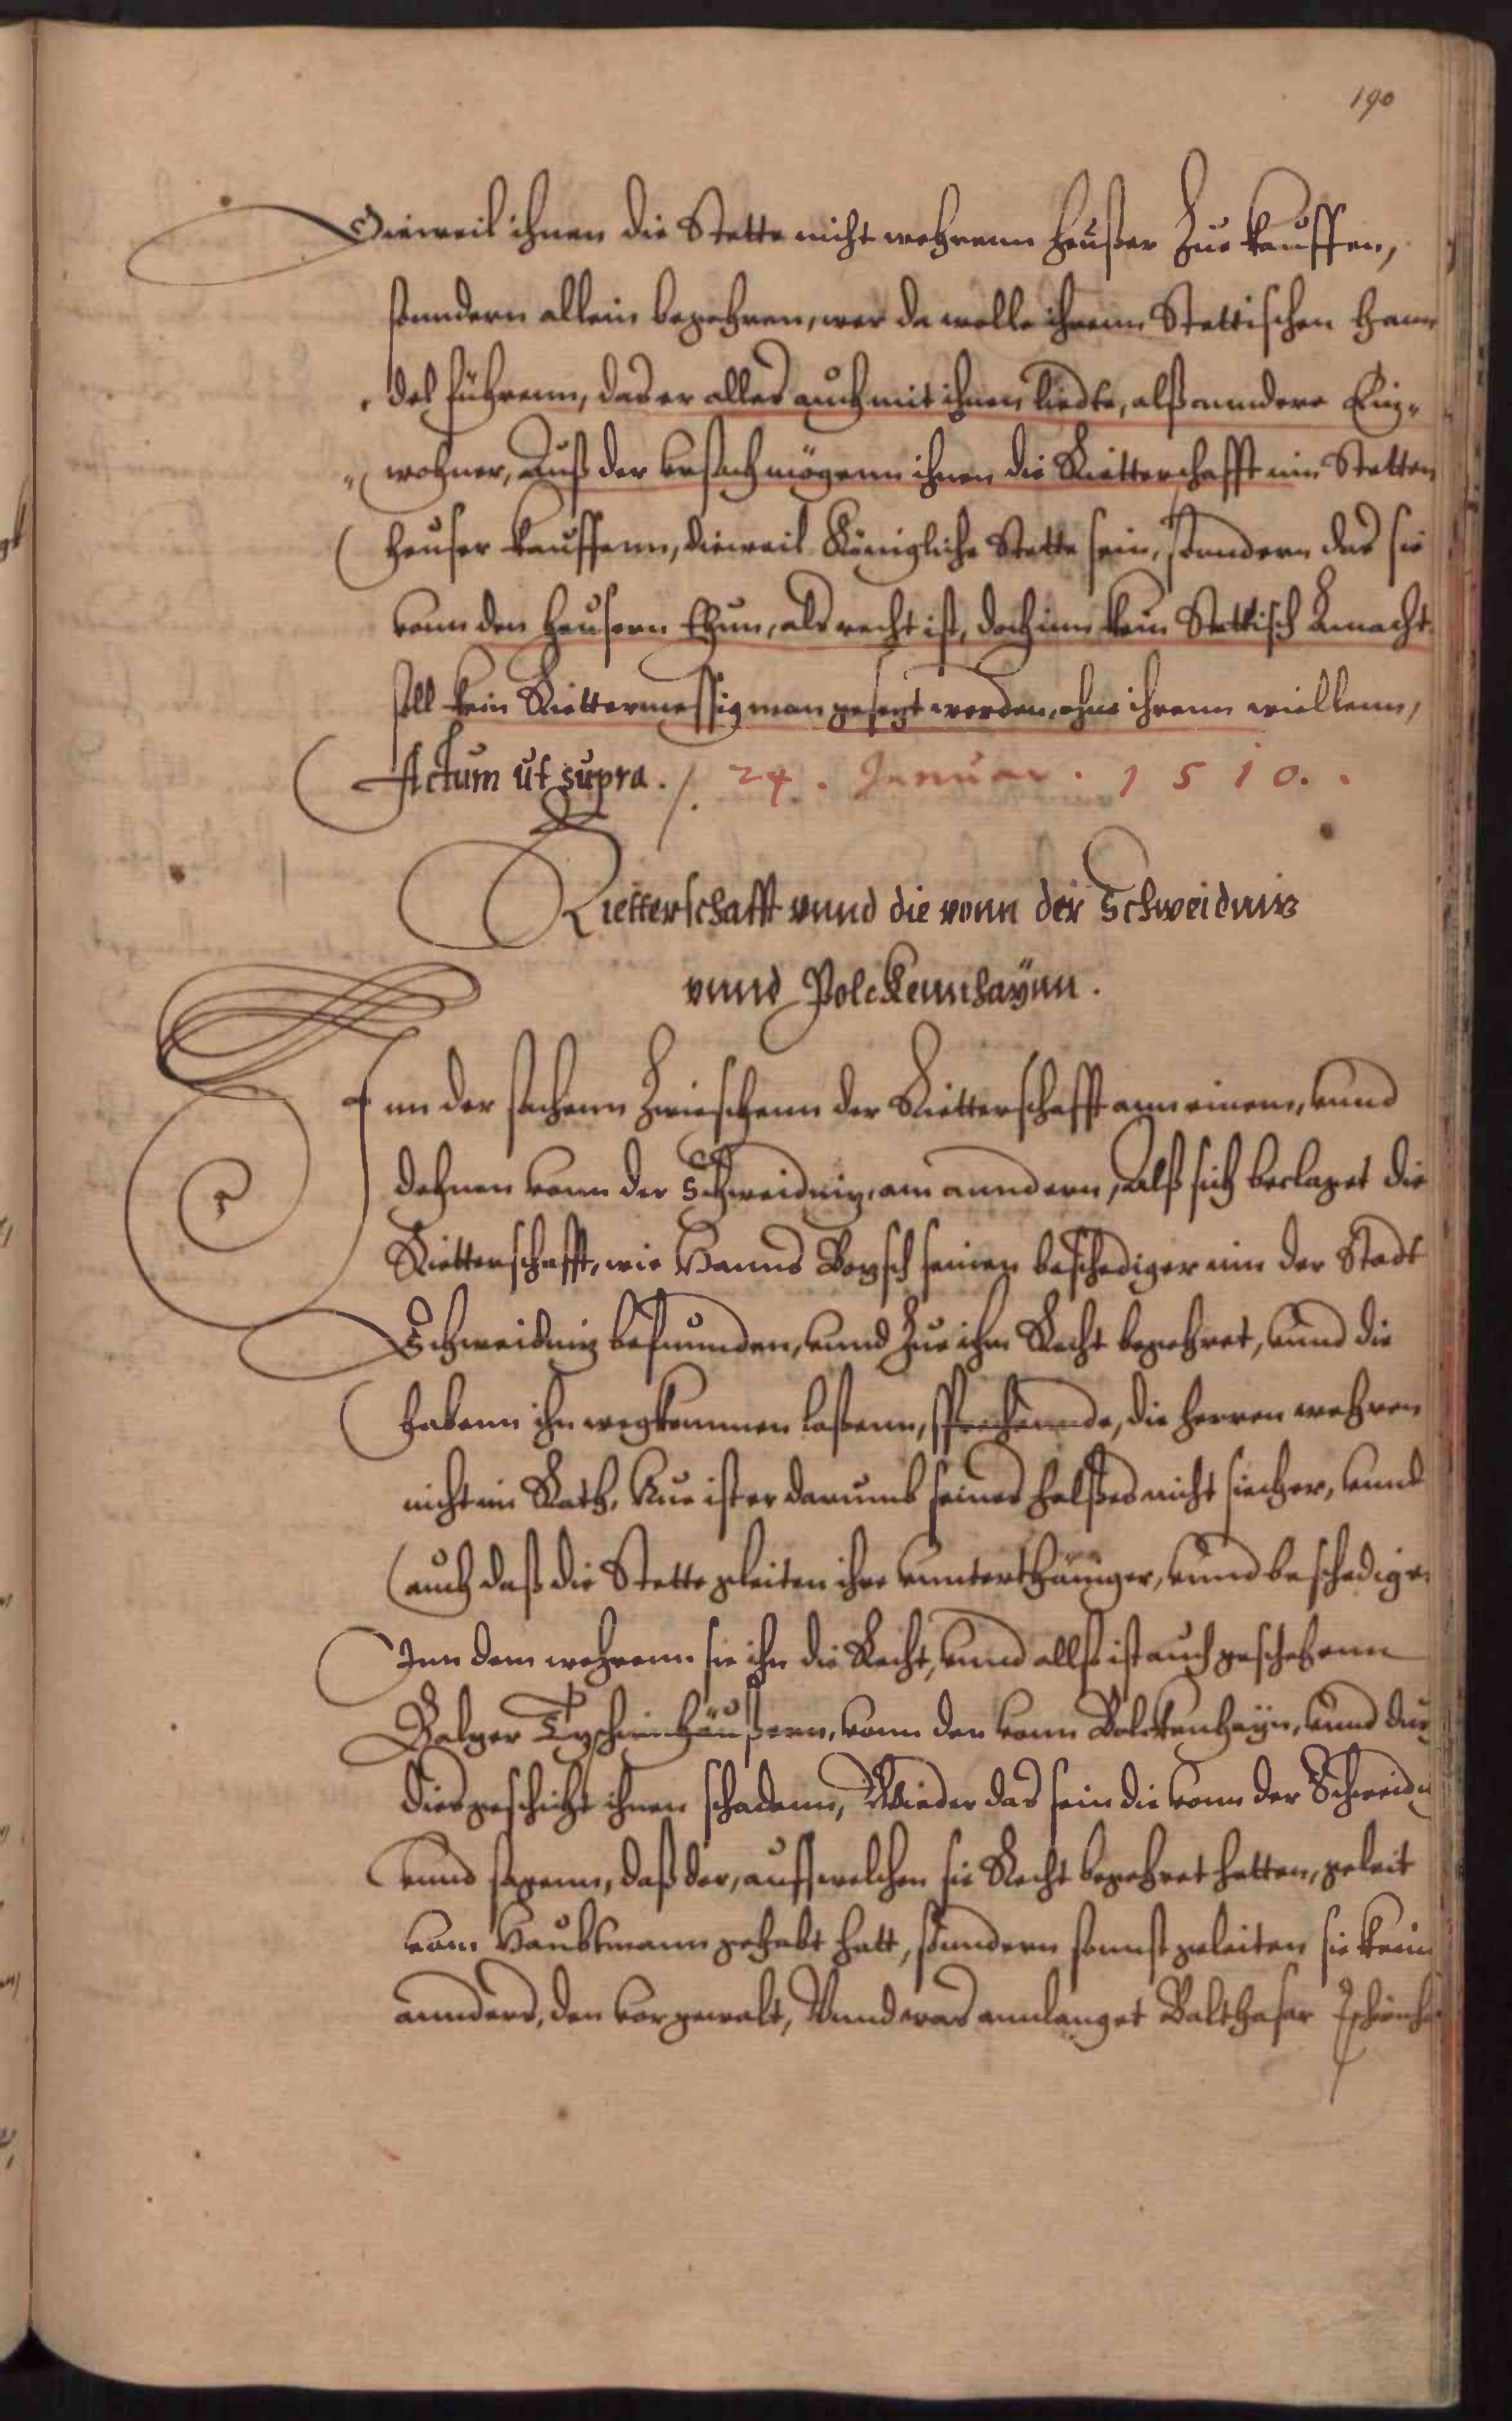 190
Dieweil ihnen die Stette nicht wehrenn heußer zue kauffen,
sonndern allein begehren, wer da wolle ihrenn Stettischen Hann
del führenn, das er alles auch mit ihnen liedte, alß anndere Ein-
wohner, Auß der vrsach mögenn ihnen die Ritterschafft inn Stetten
heuser kauffenn, dieweil Königliche Stette sein, sonndern das sie
vonn den Heusern thun, als recht ist, doch inn kein Stettisch
soll kein Rittermessig man gesetzt werden, ohne ihrenn wiellenn,
Actum ut supra. /. 24. Januar. 1510.
Rietterschafft vnnd die vonn der Schweidnitz
vnnd Polckennhaÿnn.
Inn der sachenn Zwieschenn der Ritterschafft ann einem, vnnd
dehnen vonn der Schweidnitz, am anndern, Alß sich beclaget die
Ritterschafft, wie Hanns Borsch seinen beschediger inn der Stadt
Schweidnitz befunnden, vnnd zue ihm Recht begehret, vnnd die
habenn ihn wegkommen laßenn, sprechennde, die herren wehren
nicht im Rath, Nue ist er darumb seines halßes nicht siecher, vnnd
auch daß die Stette gleiten ihre vnnterthäniger, vnnd beschediger
Inn dem wehrenn sie ihn die Recht, vnnd allß ist auch geschehenn
Balzer Tzschirnhäußern, vonn den vonn Bolckenhayn, vnnd
dies geschicht ihnen schadenn, Wieder das sein die vonn der Schweidn
vnnd sagenn, daß der, auff welchen sie Recht begehret hatten, geleit
vom Haubtmann gehabt hatt, sonndern sonnst geleiten sie kein
annders, den vor gewalt, Vnnd was annlanget Balthasar Tschirnh